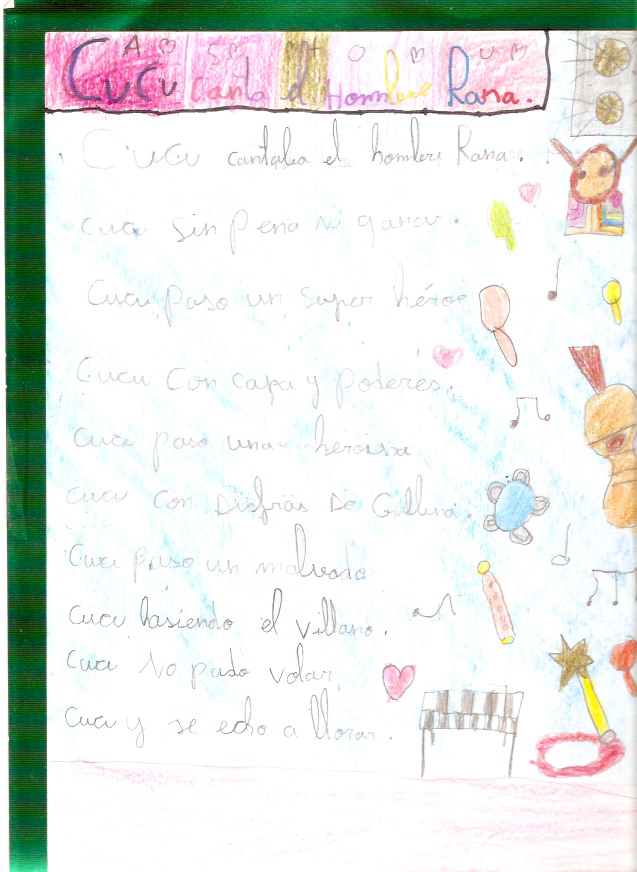 Cucu canta el Hombre Rana.
Cucu cantaba el hombre Rana.
cucu sin pena ni ganar.
Cucu paso un super héroe
Cucu con capa y poderes.
cucu paso una heroina
cucu con Disfras De Gallina.
Cucu paso un malvado
Cucu hasiendo el villano.
Cucu No pudo volar
cucu y se echo a llorar.